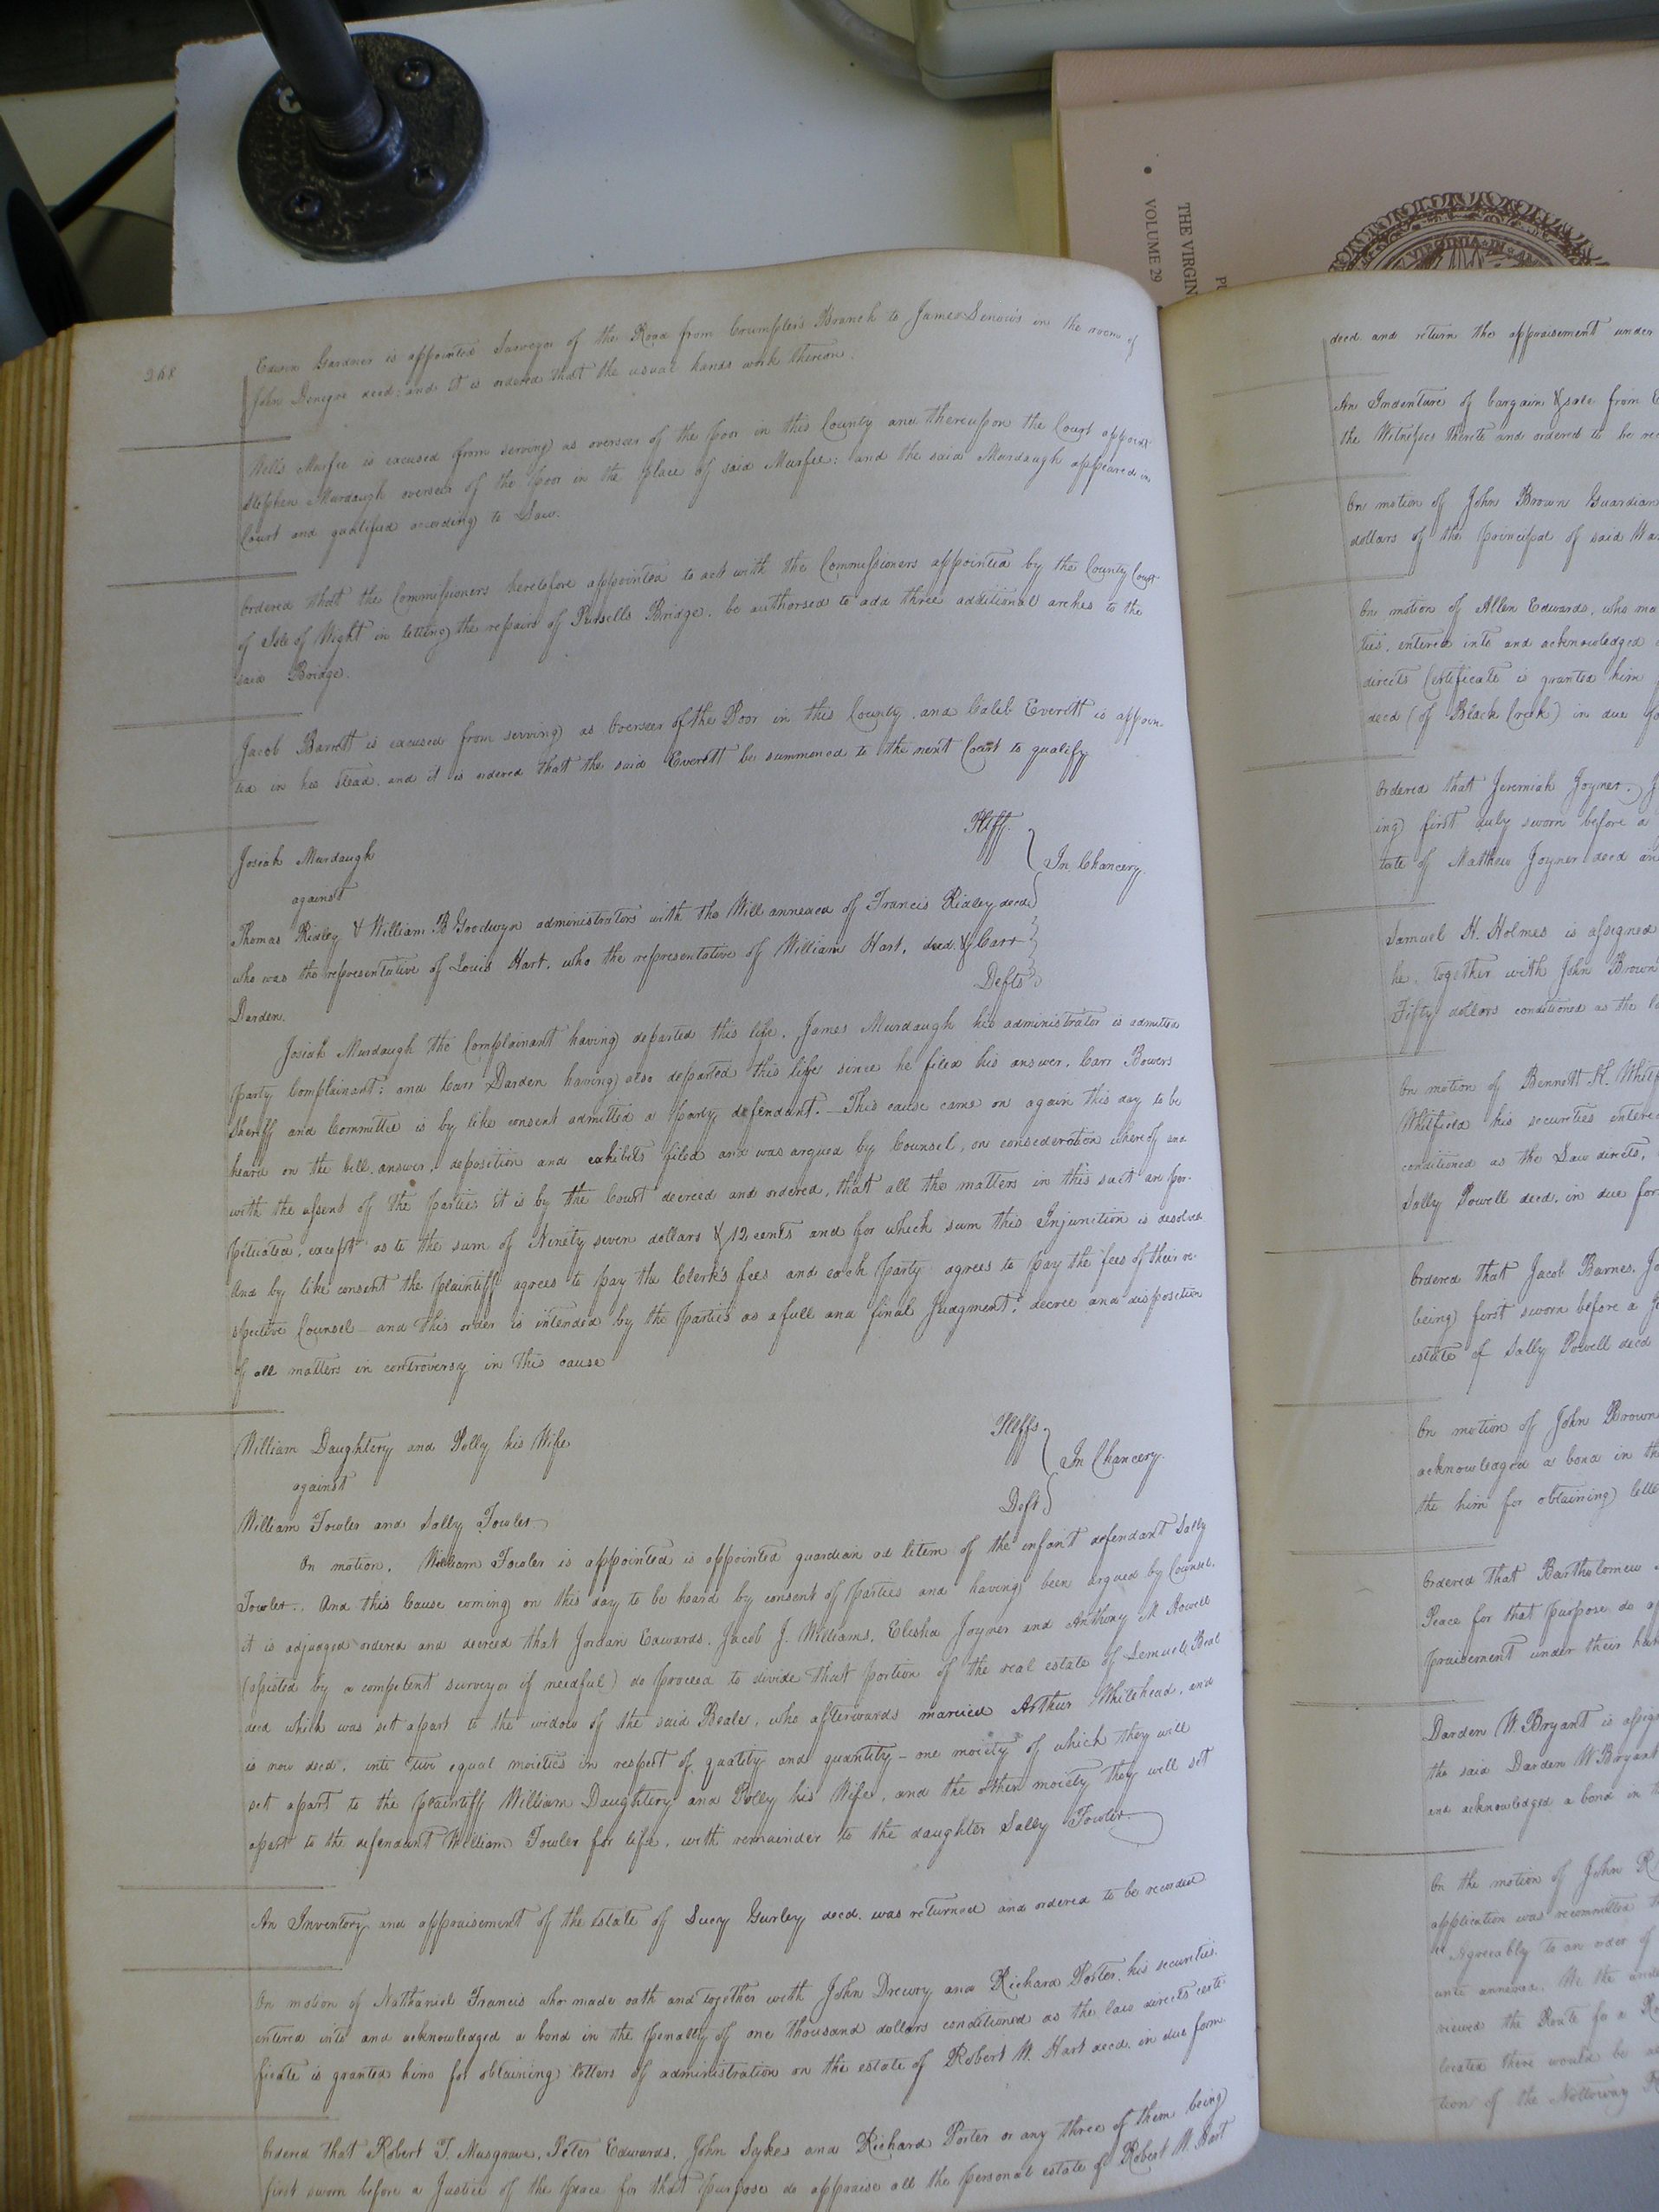 268
Edwin Gardner is appointed Surveyor of the Road from Crumpler's Branch to James Denson's in the room of
John Denegre decd: and it is ordered that the usual hands work thereon.
Mills Murfee is excused from serving as overseer of the poor in this County and thereupon the Court appoint
Stephen Murdaugh overseer of the Poor in the place of said Murfee: and the said Murdaugh appeared in
Court and qualified according to Law.
Ordered that the Commissioners heretofore appointed to act with the Commissioners appointed by the County Court
of Isle of Wight in letting the repairs of Pursells Bridge. be authorsed to add three additional arches to the
said Bridge.
Jacob Barrett is excused from serving as Overseer of the Poor in this County. and Caleb Everitt is appoin-
ted in his stead. and it is ordered that the said Everitt be summoned to the next Court to qualify
Josiah Murdaugh Pltff.
against In Chancery.
Thomas Ridley & William B Goodwyn administrators with the Will annexed of Francis Ridley decd
who was the representative of Louis Hart, who the representative of William Hart, decd. & Carr
Darden. Defts
Josiah Murdaugh the Complainant having departed this life, James Murdaugh his administrator is admitted
party Complainant: and Carr Darden having also departed this life since he filed his answer, Carr Bowers
Sheriff and Committee is by like consent admitted a party defendant. - This cause came on again this day to be
heard on the bill. answer, deposition and exhibits filed and was argued by Counsel, on consideration whereof and
with the assent of the parties it is by the Court decreed and ordered, that all the matters in this suit are per-
petuated, except as to the sum of Ninety seven dollars & 12 cents and for which sum this Injunction is desolved.
And by like consent the plaintiff agrees to pay the Clerk's fees and each party agrees to pay the fees of their re-
spective Counsel - and this order is intended by the parties as a full and final Judgment, decree and disposition
of all matters in controversy in this cause
William Daughtery and Polly his Wife Pltffs.
against In Chancery.
William Fowler and Sally Fowler Deft
On motion, William Fowler is appointed is appointed guardian ad litem of the infant defendant Sally
Fowler. And this Cause coming on this day to be heard by consent of parties and having been argued by Counsel.
it is adjudged ordered and decreed that Jordan Edwards, Jacob J. Williams, Elisha Joyner and Anthony M Howell
(assisted by a competent surveyor if needful) do proceed to divide that portion of the real estate of Lemuel Beal
decd which was set apart to the widow of the said Beale, who afterwards married Arthur Whitehead, and
is now decd, into two equal moieties in respect of quality and quantity - one moiety of which they will
set apart to the plaintiff William Daughtery and Polly his Wife, and the other moiety they will set
apart to the defendant William Fowler for life, with remainder to the daughter Sally Fowler.
An Inventory and appraisement of the estate of Lucy Gurley decd. was returned and ordered to be recorded
On motion of Nathaniel Francis who made oath and together with John Drewry and Richard Porter, his securities.
entered into and acknowledged a bond in the penalty of one thousand dollars conditioned as the law directs certi
ficate is granted him for obtaining letters of administration on the estate of Robert M. Hart decd. in due form.
Ordered that Robert T. Musgrave, Peter Edwards, John Sykes and Richard Porter or any three of them being
first sworn before a Justice of the peace for that purpose do appraise all the personal estate of Robert M. Hart
decd. and return the appraisement under
An Indenture of bargain & sale from
the Witnesses thereto and ordered to be re
On motion of John Brown Guardian
dollars of the principal of said Wa
On motion of Allen Edwards, who ma
ties, entered into and acknowledged
directs Certificate is granted him
decd (of Black Creek) in due fo
Ordered that Jeremiah Joyner, J
ing first duly sworn before a
tate of Matthew Joyner decd an
Samuel H. Holmes is assigned
he, together with John Brown
Fifty dollars conditioned as the l
On motion of Bennett H. Whitf
Whitfield his securities entere
conditioned as the Law directs,
Sally Powell decd. in due for
Ordered that Jacob Barnes, Jo
being first sworn before a J
estate of Sally Powell decd
On motion of John Brown
acknowledged a bond in th
the him for obtaining lette
Ordered that Bartholomew
Peace for that purpose do ap
praisement under their han
Darden W. Bryant is assig
the said Darden W Bryant
and acknowledged a bond in t
On the motion of John R
application was recommitted t
"Agreeably to an order of
unto annexed. We the unde
viewed the Route for a Ro
located there would be
tion of the Nottoway R
THE VIRGIN
VOLUME 29
PU
VIRGINIA IN